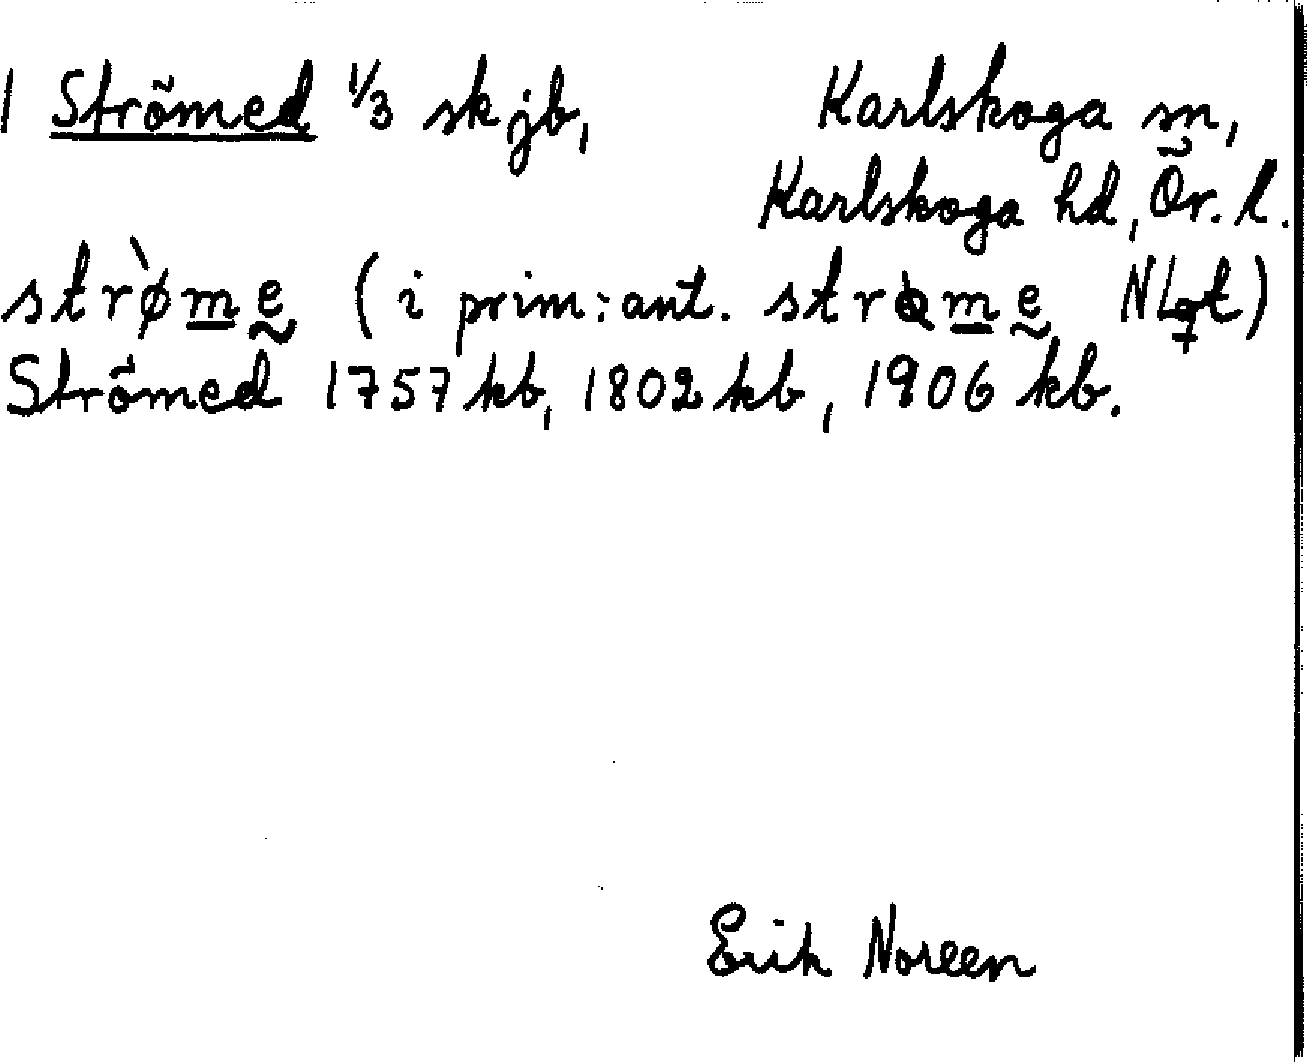 1 Strömed 1/3 skjb, Karlskoga sn,
Karlskoga hd, Ör. l.
strø̀me (i prim:ant. 
Strömed 1757 kb, 1802 kb, 1906 kb.
Erik Noreen